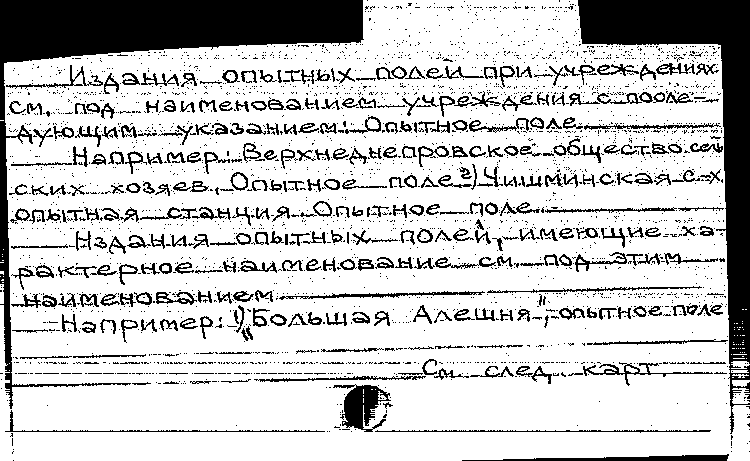 Издания опытных полей при учреждениях
см. под наименованием учреждения с после-
дующим указанием: Опытное поле
Например: Верхнеднепровское общество сель
ских хозяев. Опытное поле 2) Чишминская с-х
опытная станция. Опытное поле.
Издания опытных полей, имеющие ха-
рактерное наименование см. под этим
наименованием
Например: 1) „Большая Алешня", опытное поле
См. след. карт.